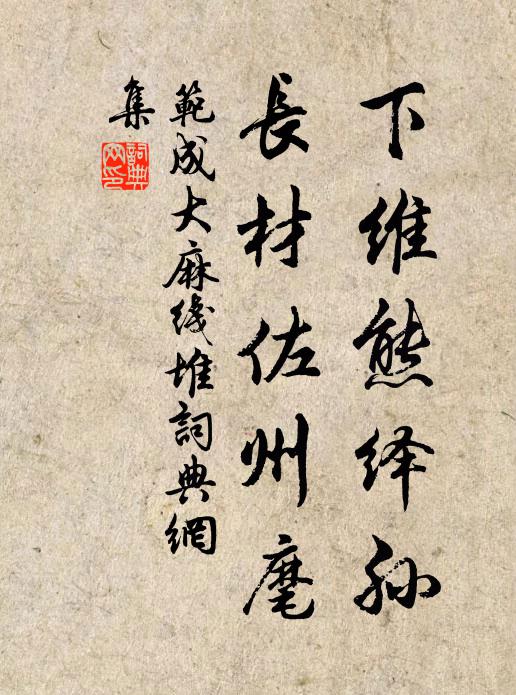 下维熊绎孙
長材佐州麾
範成大麻线堆詞典網
集
詞典
网印